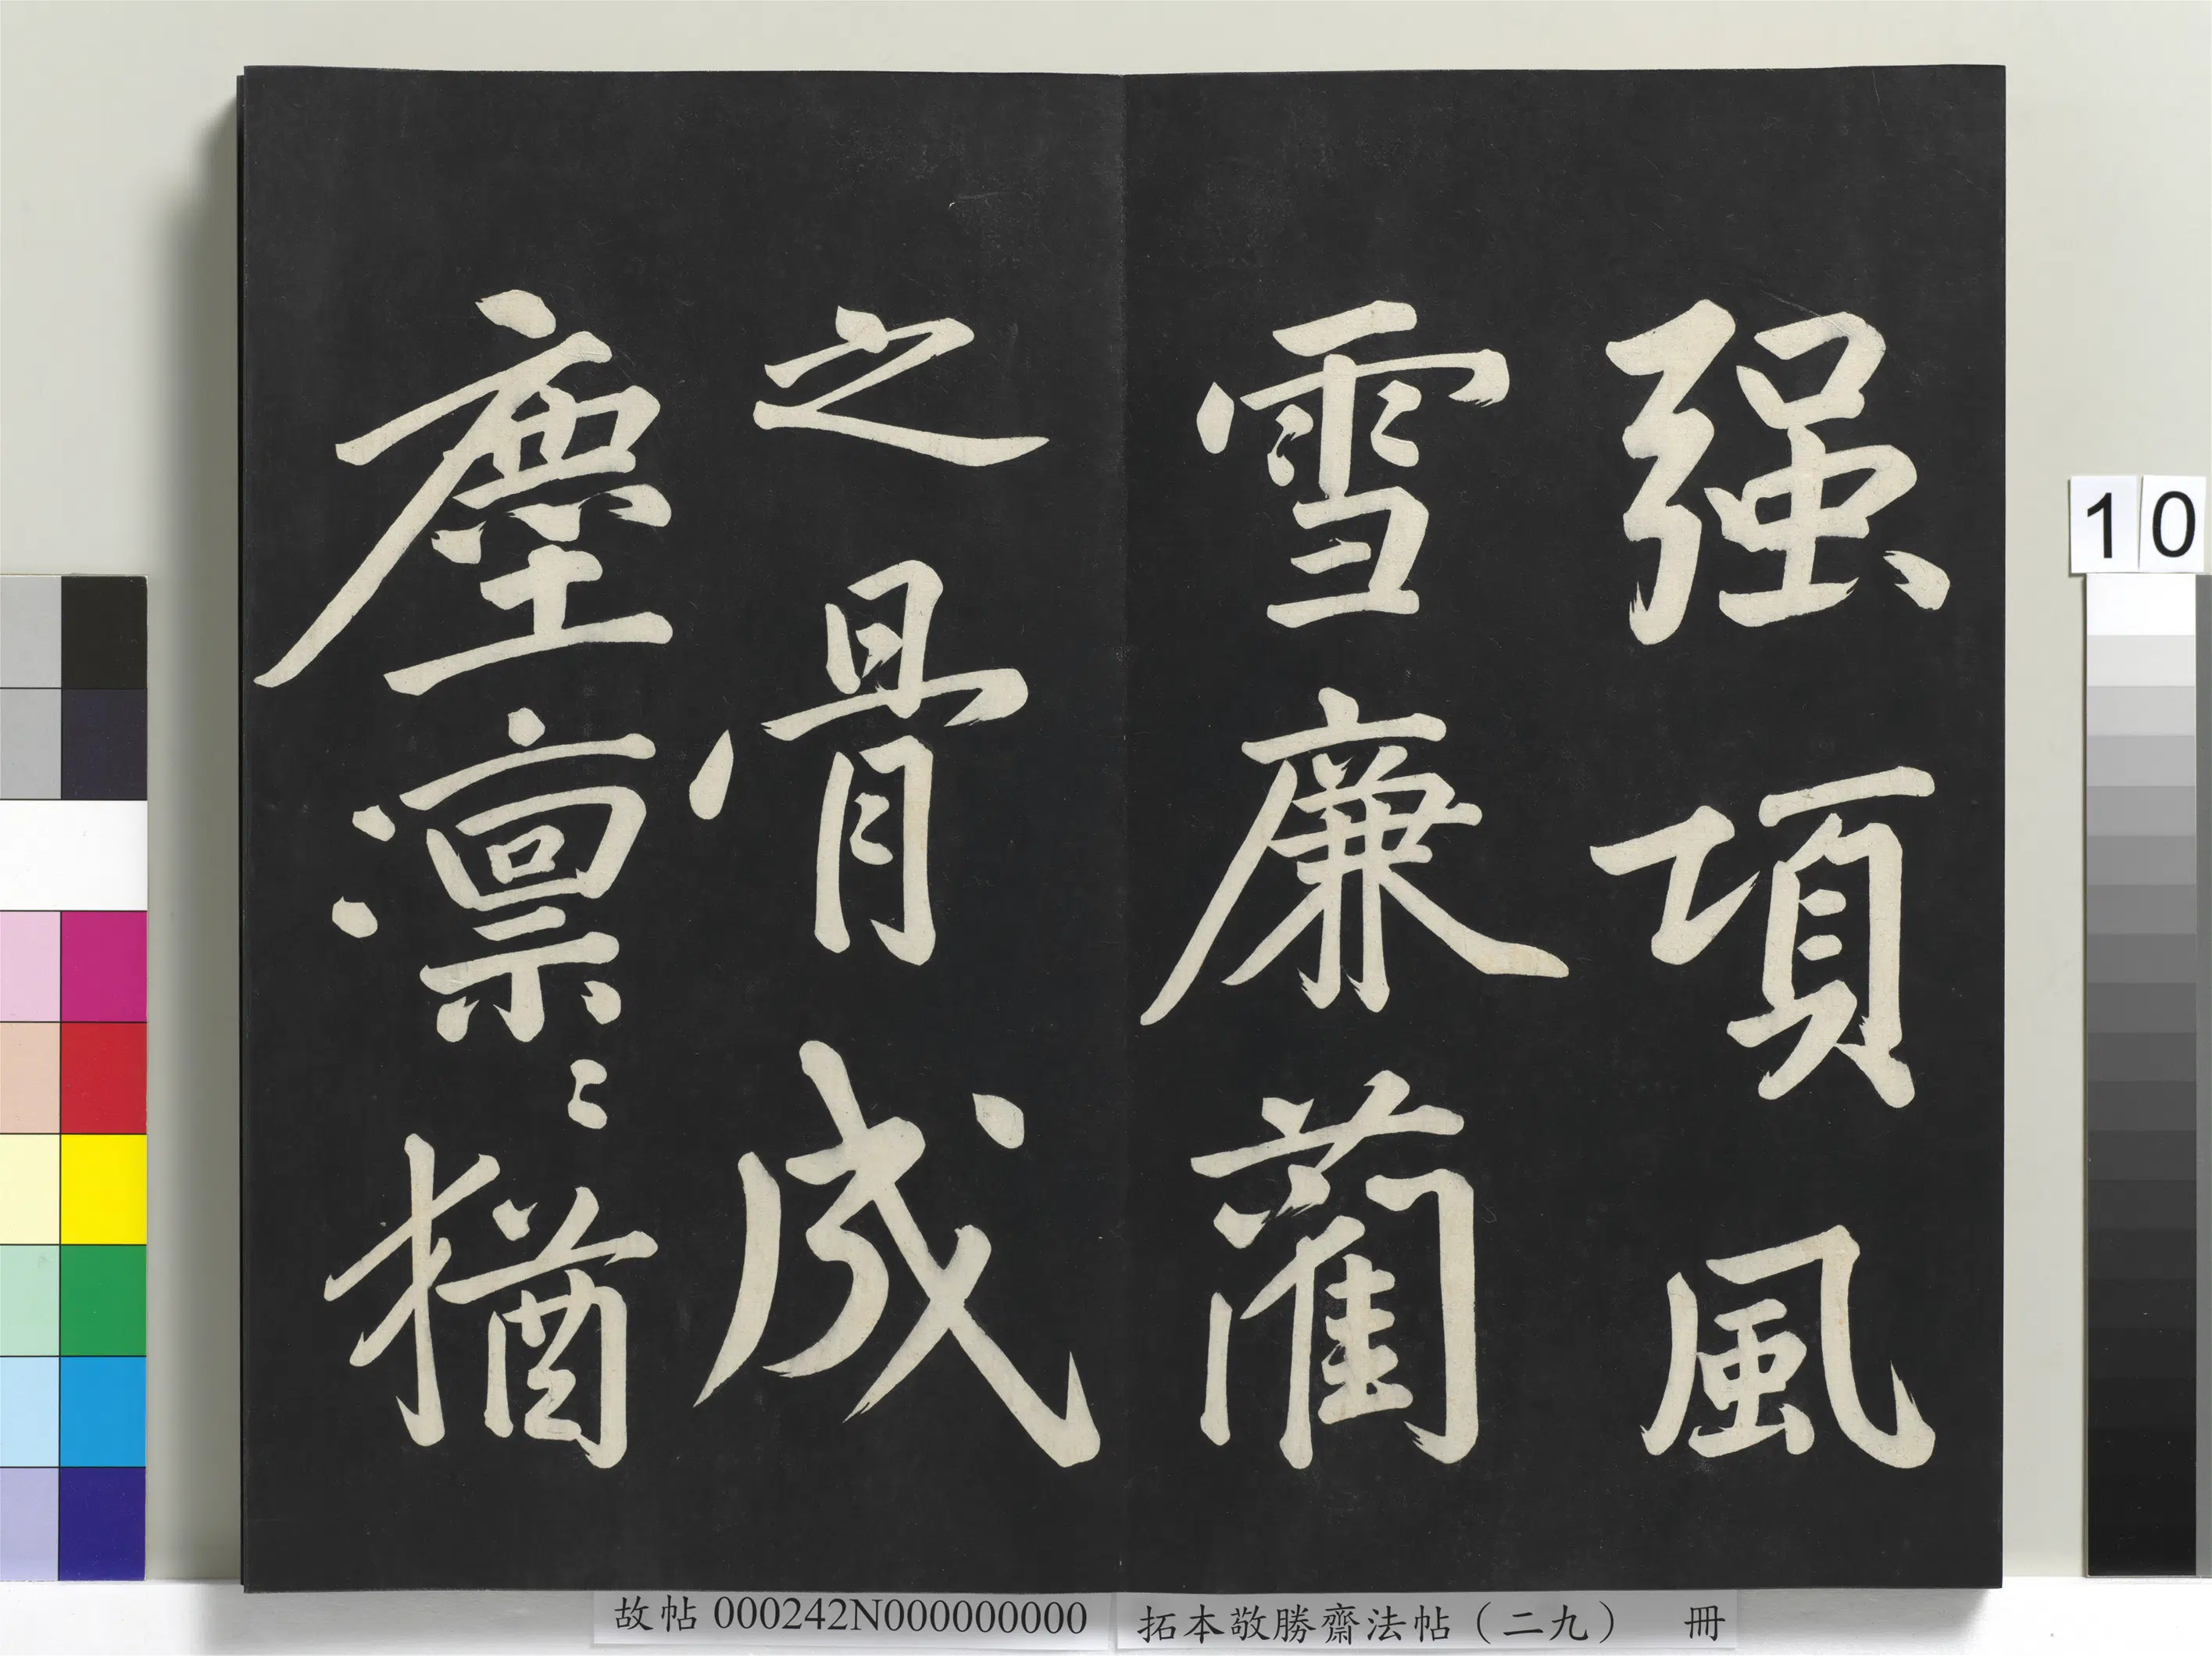 强項風
雪廉藺
之骨成
塵凛〻猶
10
故帖 000242N000000000
拓本敬勝齋法帖（二九） 冊